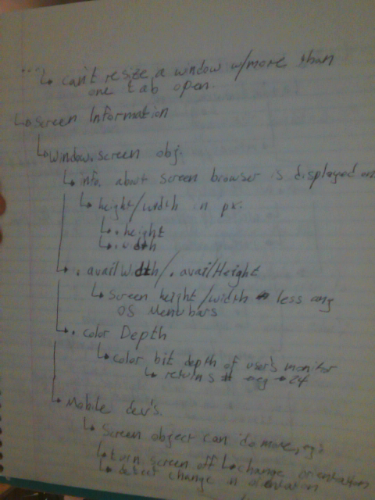 ... ↳ can't resize a window w/more than
one tab open.
↳ Screen Information
↳ window.screen obj:
↳ info. about screen browser is displayed on
↳ height/width in px:
↳ .height
↳ .width
↳ .availWidth/.availHeight
↳ Screen height/width less any
OS Menubars
↳ .color Depth
↳ color bit depth of user's monitor
↳ returns 24
↳ Mobile dev's
↳ Screen object can do more, eg:
↳ turn screen off ↳ change orientation
↳ detect change in orientation